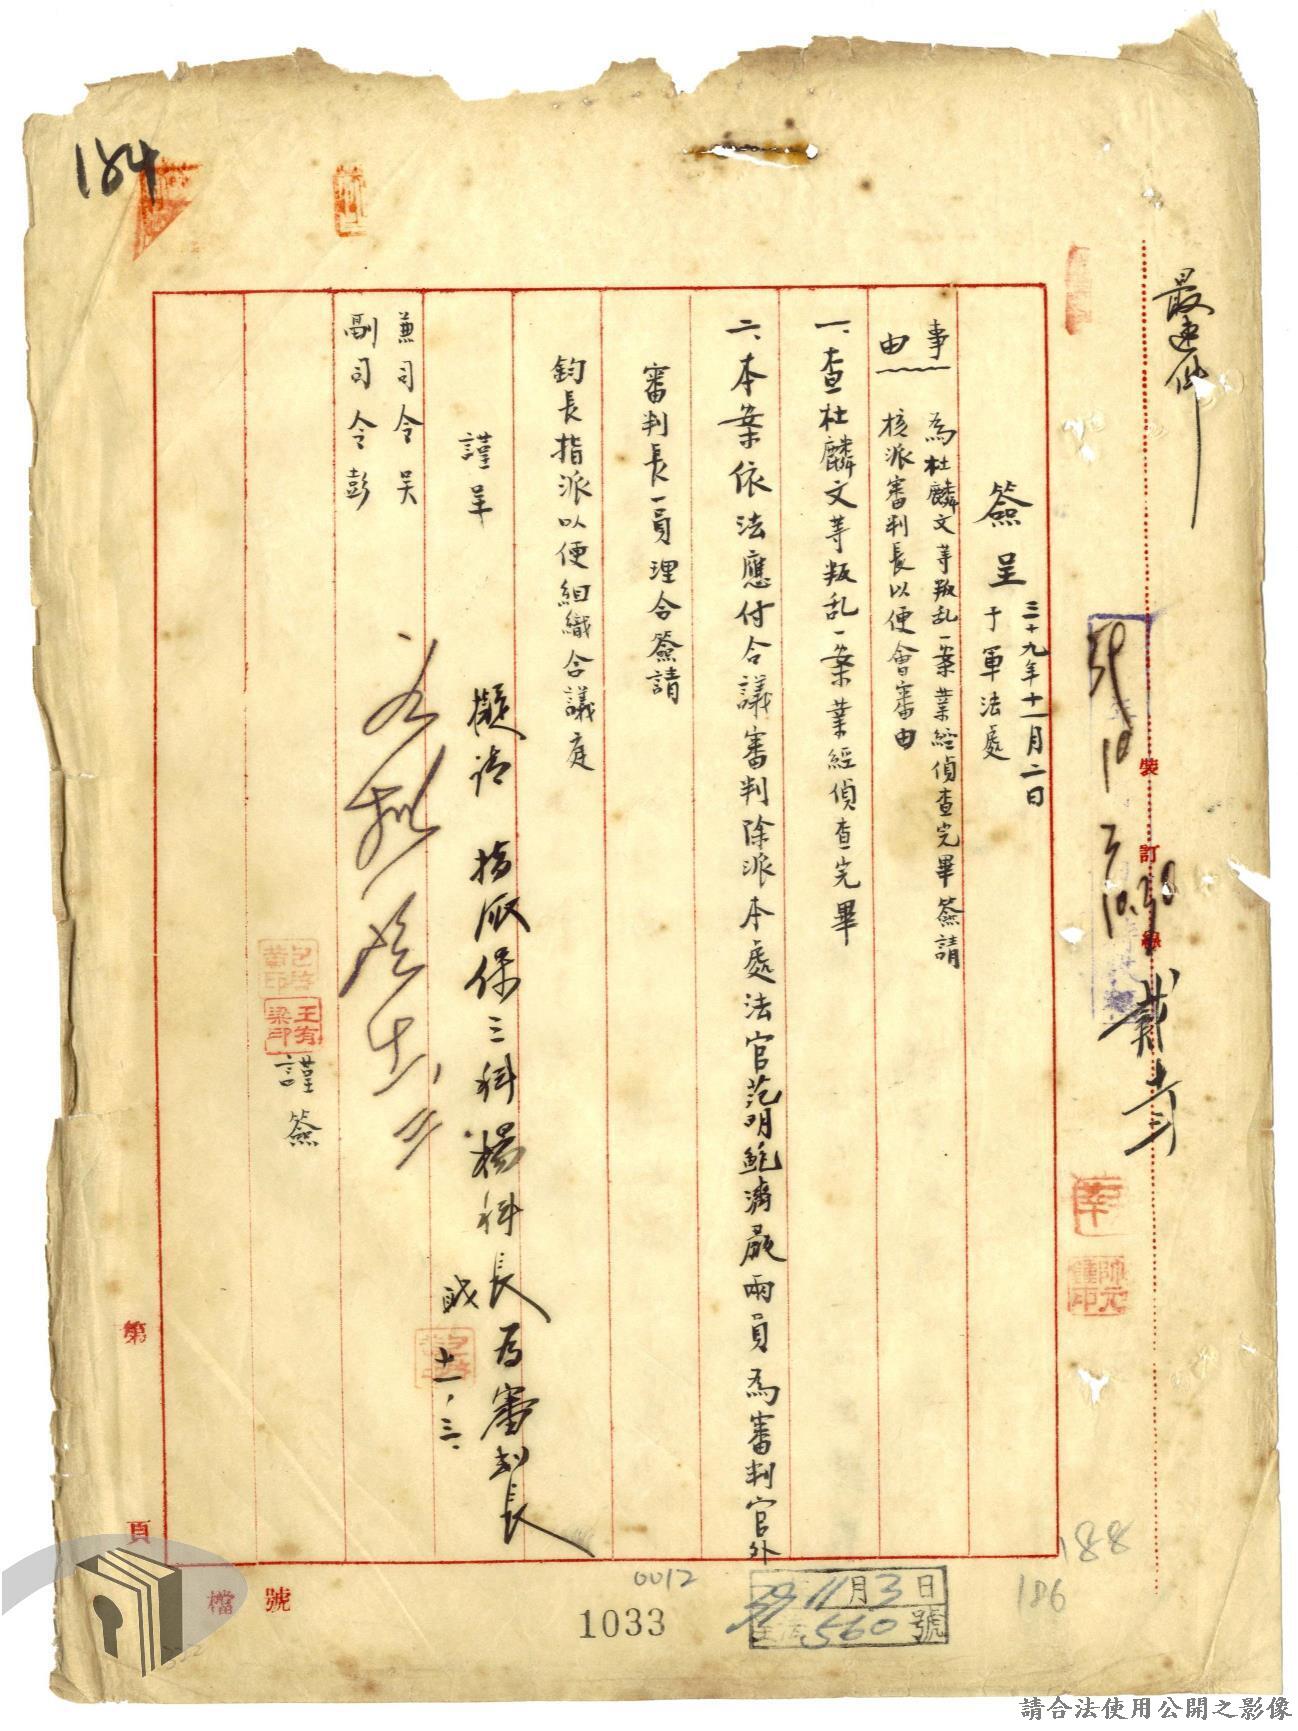 184
最速件
簽呈 三十九年十一月二日
于軍法處
事由
為杜麟文等叛乱一案業經偵查完畢簽請
核派審判長以便會審由
一、查杜麟文等叛乱一案業經偵查完畢
二、本案依法應付合議審判除派本處法官范明鮑濟嚴兩員為審判官外
審判長一員理合簽請
鈞長指派以便組織合議庭
謹呈
兼司令吳
副司令彭
擬請 指派保三科楊科長為審判長
十一、三、
王有梁印
謹簽
裝
訂
線
第
頁
檔
號
0012
1033
39 11月3日
560號
188
186
請合法使用公開之影像